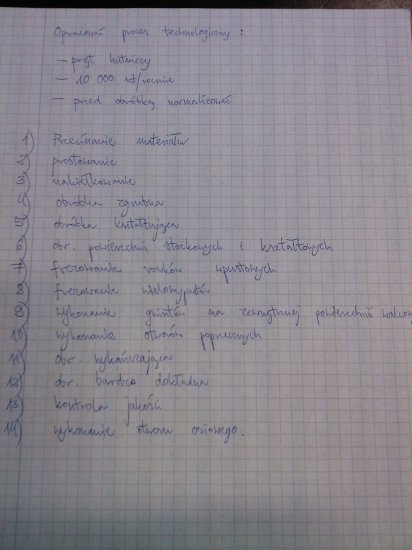 Opracować proces technologiczny :
— pręt hutniczy
— 10 000 szt/rocznie
— przed obróbką normalizować
1) Przecinanie materiału
2) prostowanie
3) nakiełkowanie
4) obróbka zgrubna
5) obróbka kształtująca
6) obr. powierzchni stożkowych i kształtowych
7) frezowanie rowków wpustowych
8) frezowanie wielowypustów
9) wykonanie gwintów na zewnętrznej powierzchni walcow
10) wykonanie otworów poprzecznych
11) obr. wykańczająca
12) obr. bardzo dokładna
13) kontrola jakości
14) wykonanie otworu osiowego.